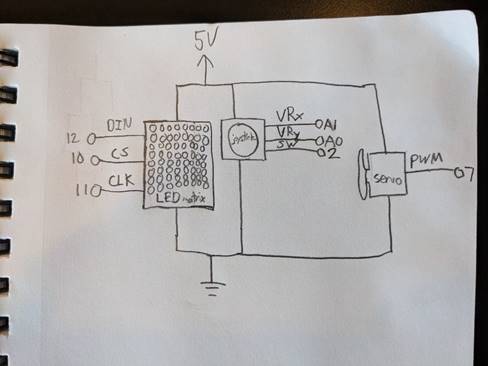 5V
DIN
12
CS
10
CLK
11
LED matrix
joystick
VRx
A1
VRy
A0
SW
2
servo
PWM
7